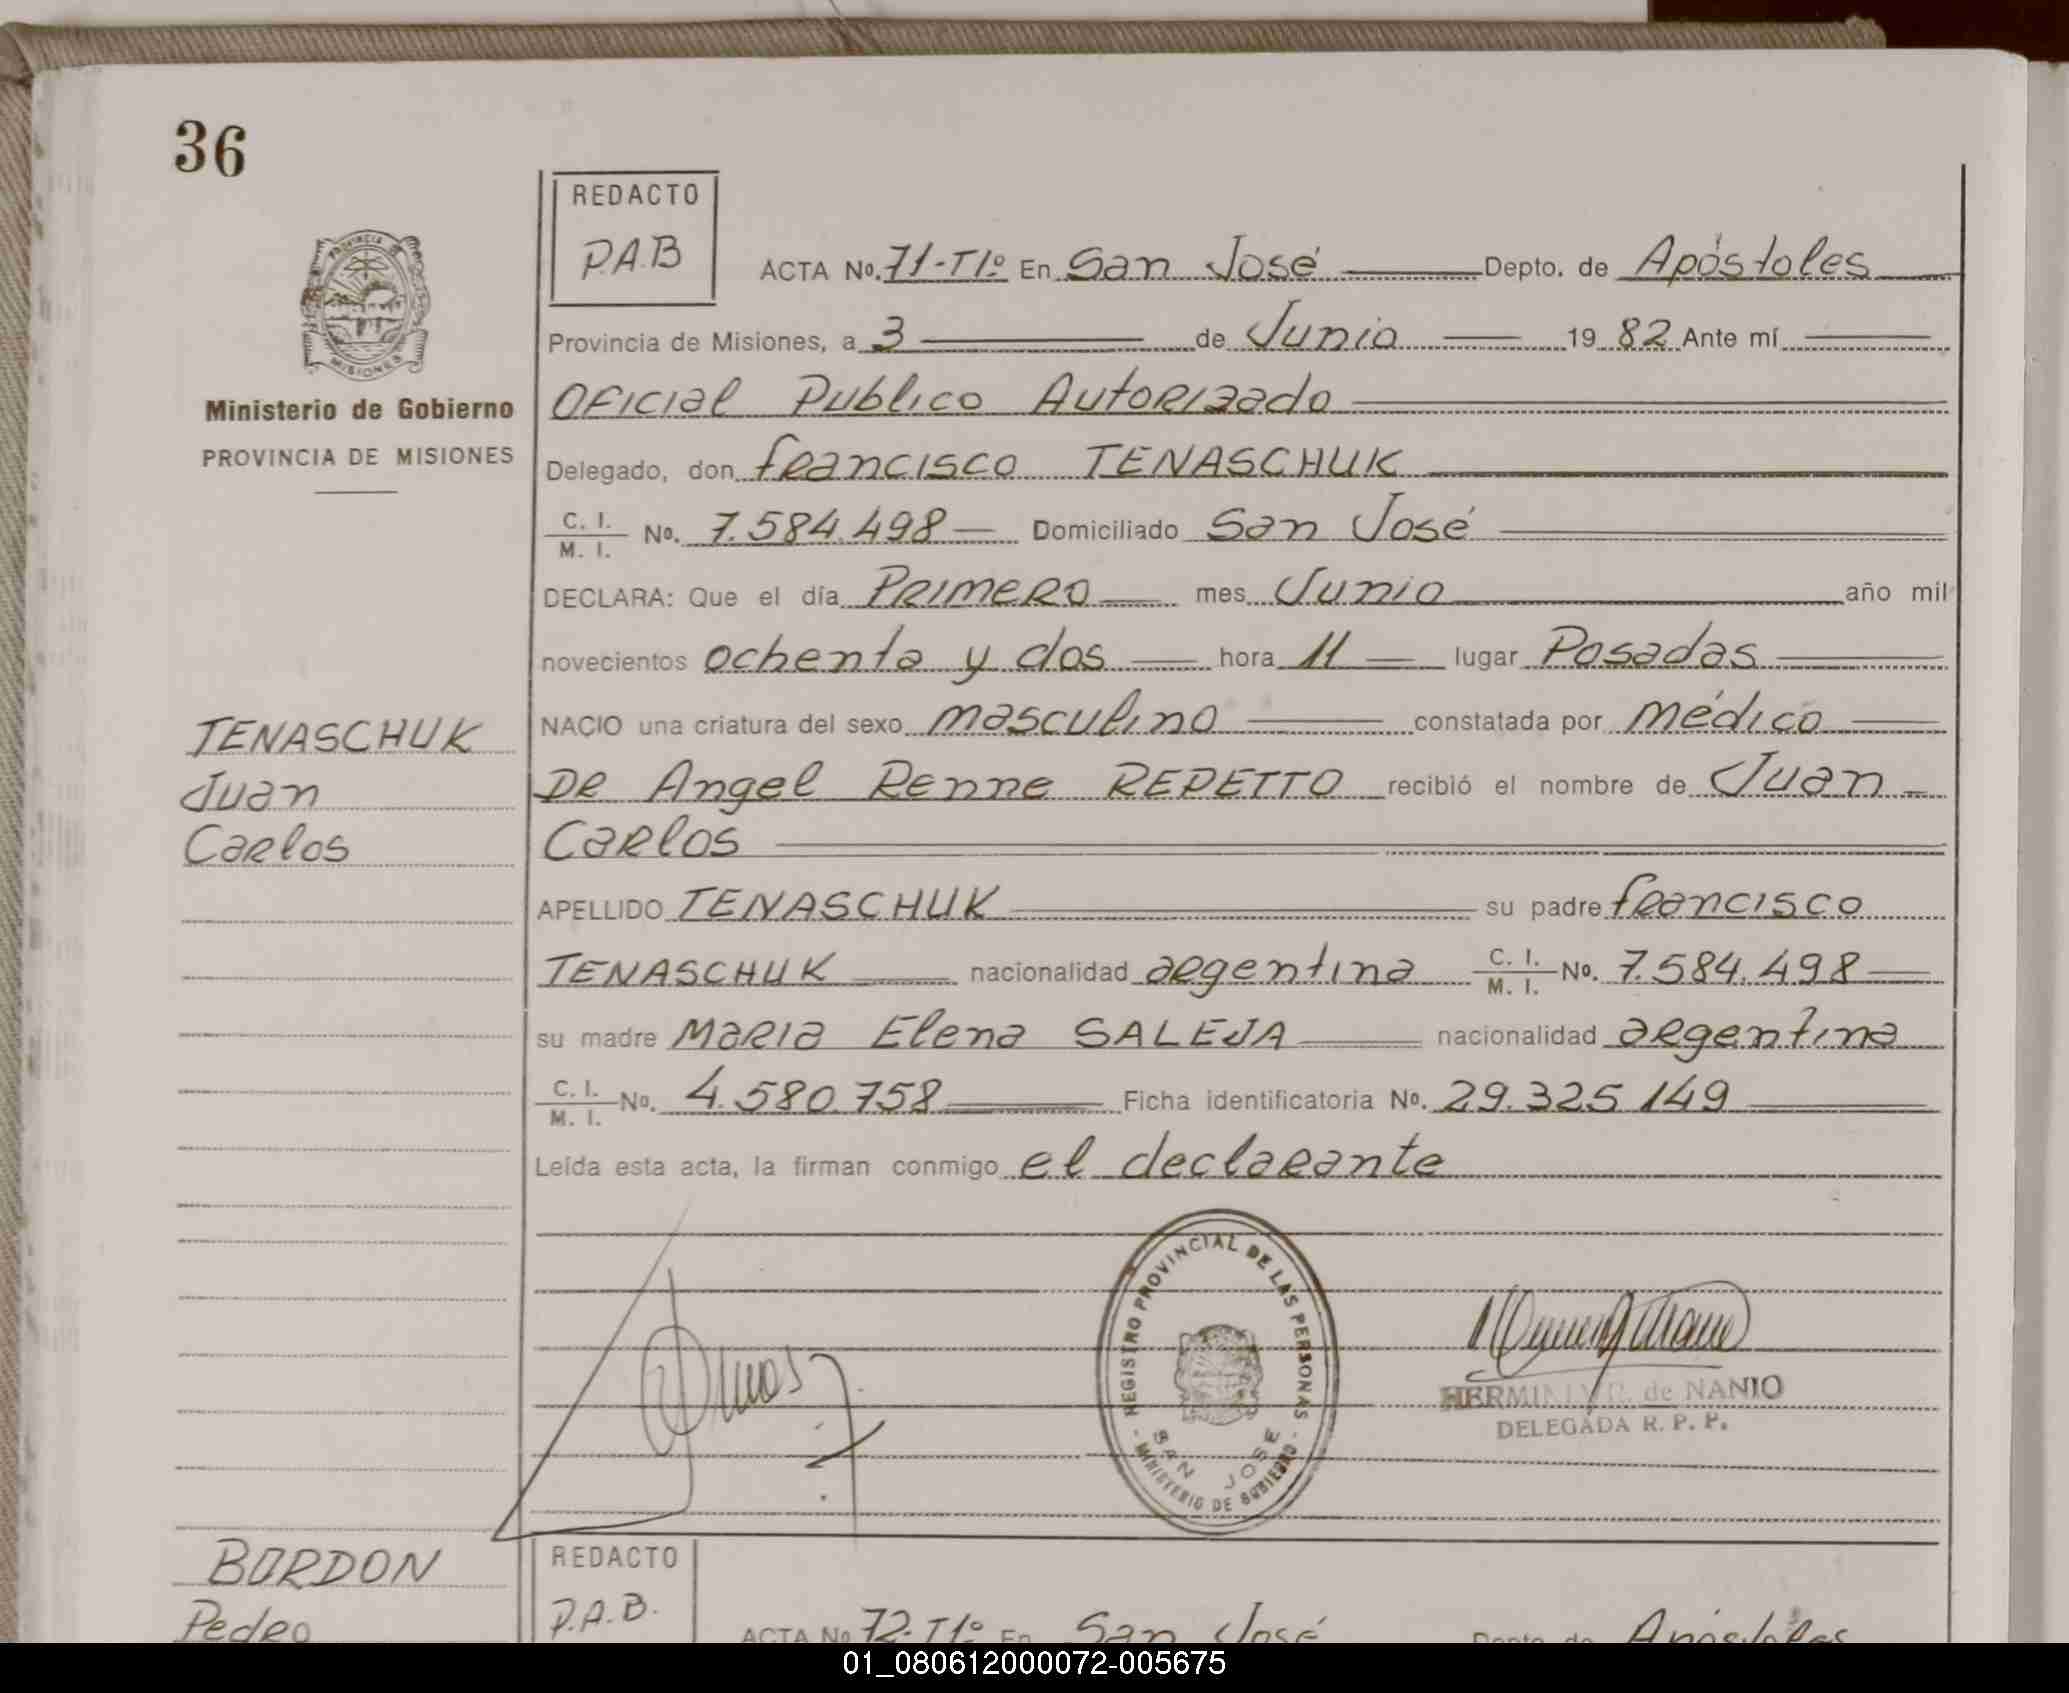 36
REDACTO
P.A.B
PROVINCIA DE
MISIONES
Ministerio de Gobierno
PROVINCIA DE MISIONES
ACTA No. 71-T1º En San José Depto. de Apóstoles
Provincia de Misiones, a 3 de Junio 19 82 Ante mí
Oficial Publico Autorizado
Delegado, don Francisco TENASCHUK
C. I.
M. I. No. 7.584.498 Domiciliado San José
DECLARA: Que el día Primero mes Junio año mil
novecientos ochenta y dos hora 11 lugar Posadas
NACIO una criatura del sexo masculino constatada por médico
De Angel Renne REPETTO recibió el nombre de Juan
Carlos
TENASCHUK
Juan
Carlos
APELLIDO TENASCHUK su padre Francisco
TENASCHUK nacionalidad argentina C. I. M. I. No. 7.584.498
su madre Maria Elena SALEJA nacionalidad argentina
C. I.
M. I. No. 4.580.758 Ficha identificatoria No. 29.325.149
Leída esta acta, la firman conmigo el declarante
REGISTRO PROVINCIAL DE LAS PERSONAS
SAN JOSE
- MINISTERIO DE GOBIERNO -
de NANIO
DELEGADA R. P. P.
BORDON
Pedro
REDACTO
P.A.B.
ACTA No 72-T1º En San José Depto de Apóstoles
01_080612000072-005675